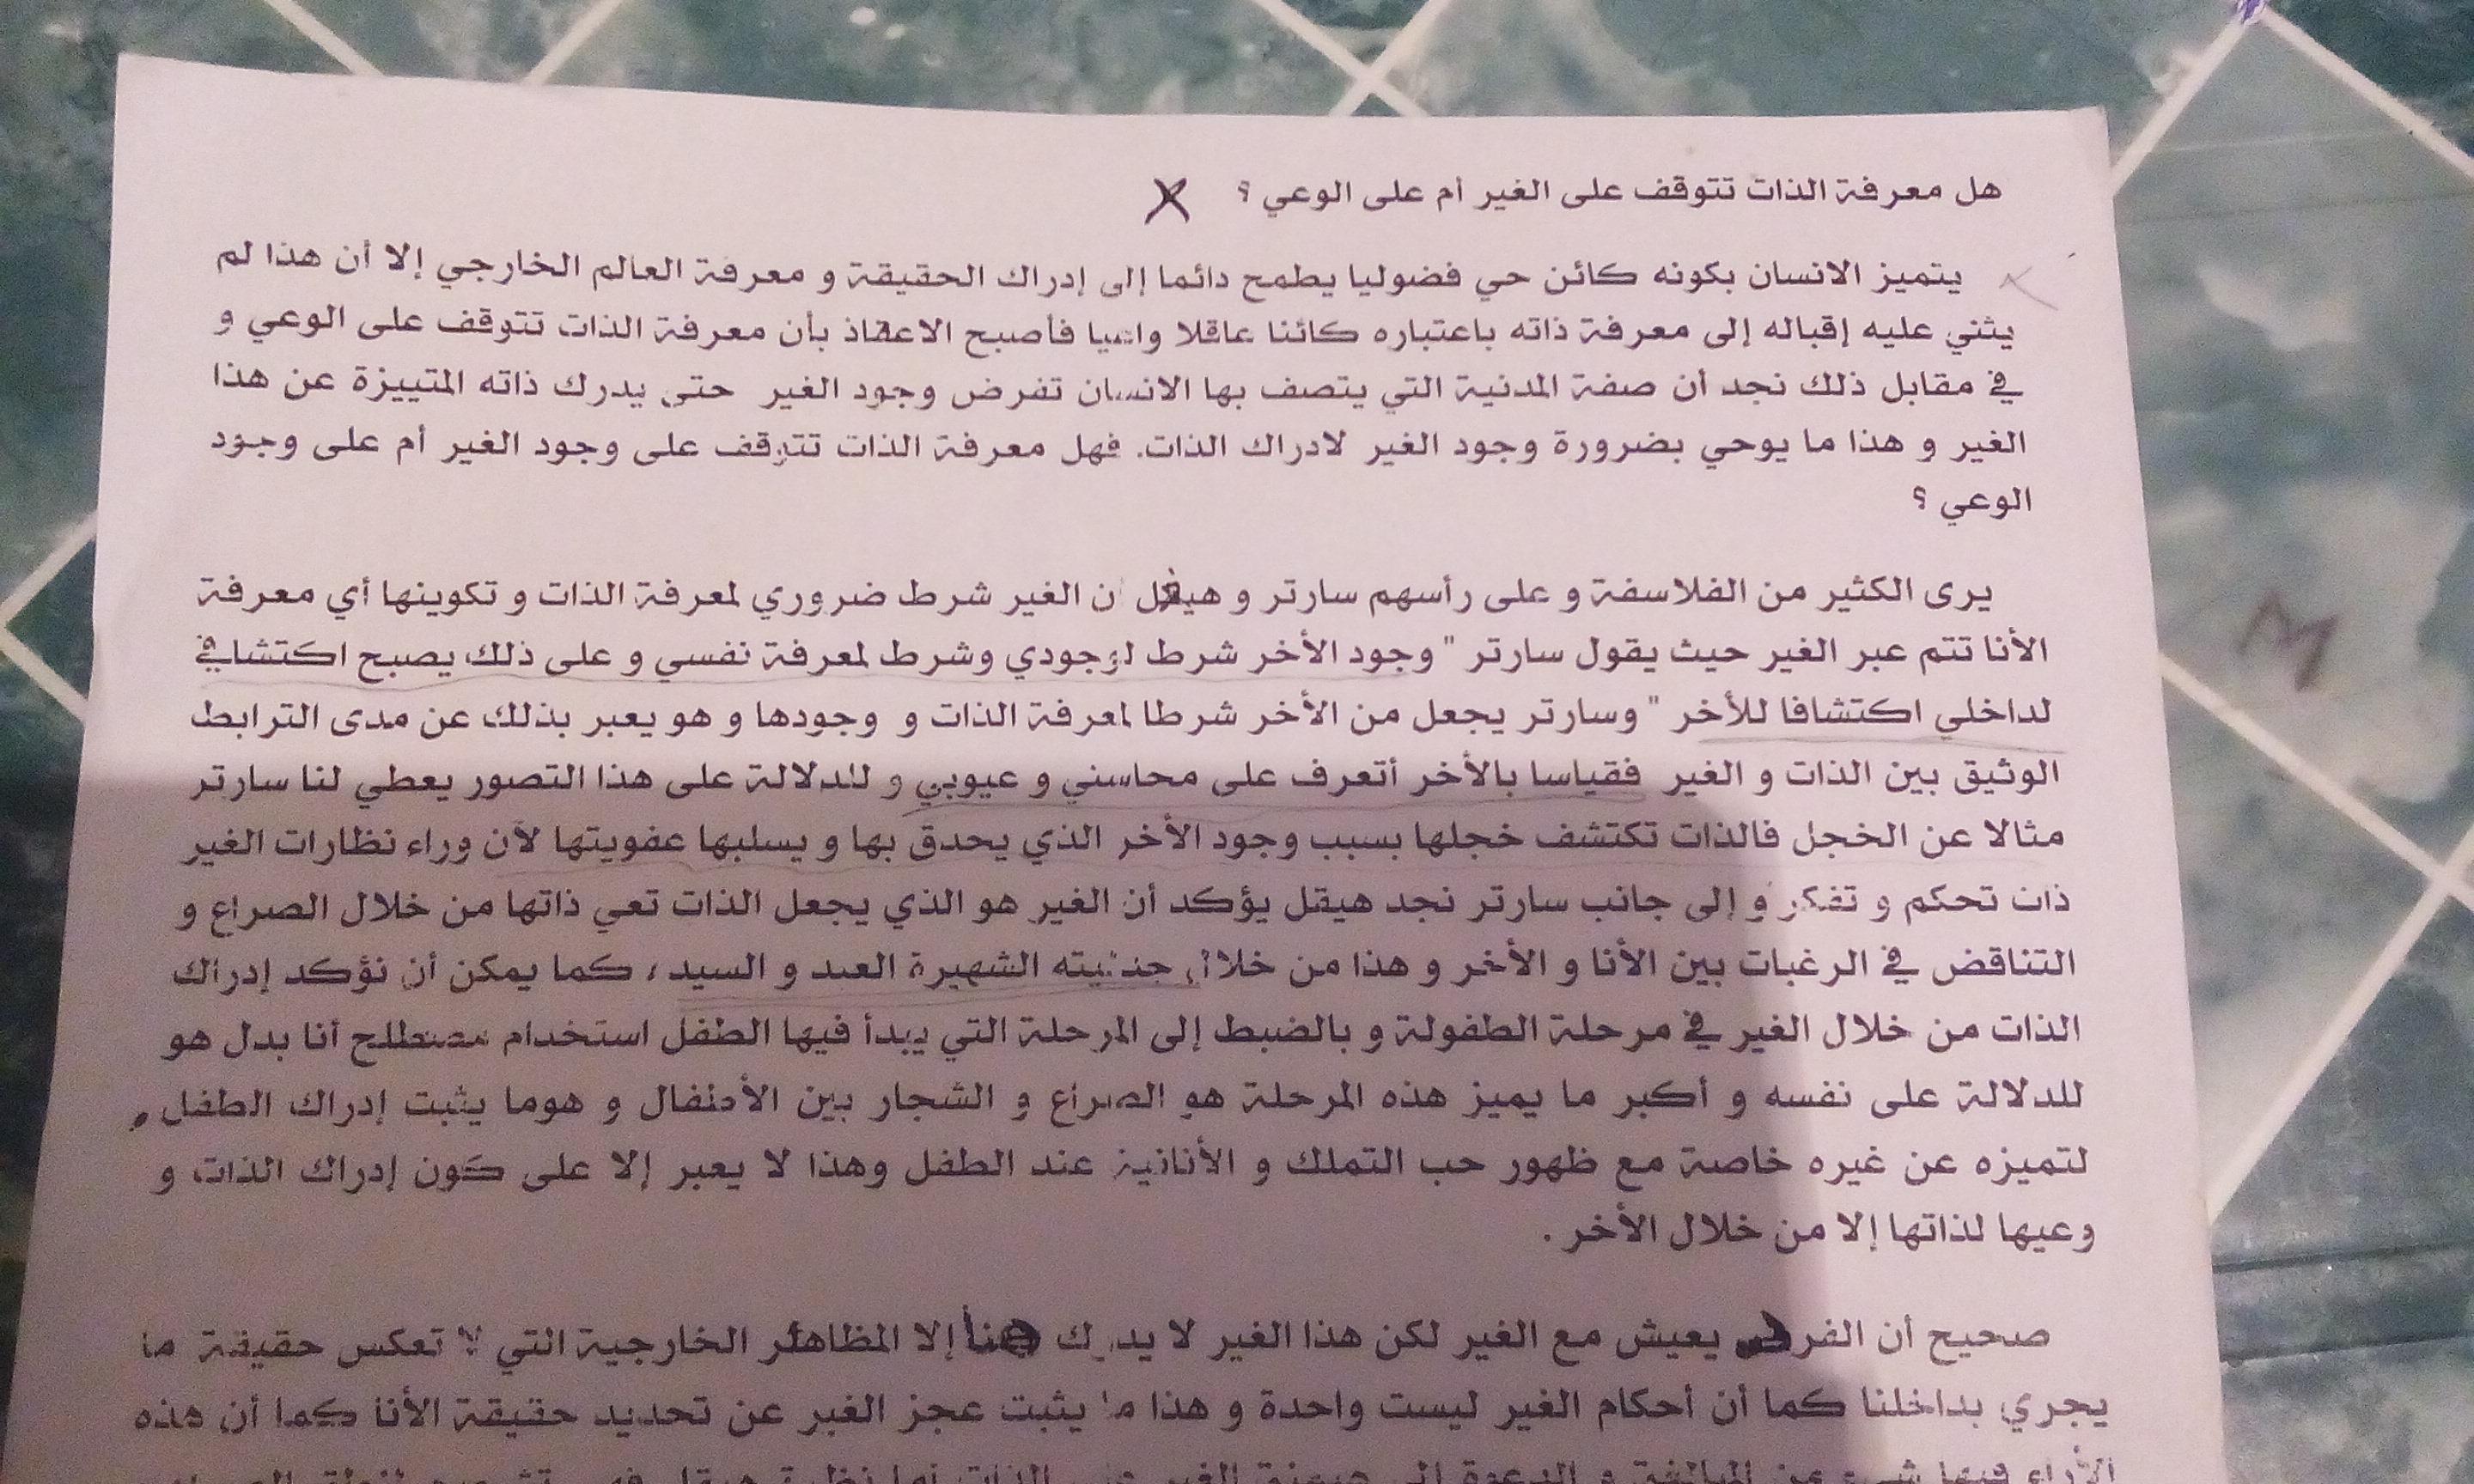 هل معرفة الذات تتوقف على الغير أم على الوعي ؟ X
يتميز الانسان بكونه كائن حي فضوليا يطمح دائما إلى إدراك الحقيقة و معرفة العالم الخارجي إلا أن هذا لم
يثني عليه إقباله إلى معرفة ذاته باعتباره كائنا عاقلا واعيا فأصبح الاعقاذ بأن معرفة الذات تتوقف على الوعي و
في مقابل ذلك نجد أن صفة المدنية التي يتصف بها الانسان تفرض وجود الغير حتى يدرك ذاته المتييزة عن هذا
الغير و هذا ما يوحي بضرورة وجود الغير لادراك الذات. فهل معرفة الذات تتوقف على وجود الغير أم على وجود
الوعي ؟
يرى الكثير من الفلاسفة و على رأسهم سارتر و هيقل ن الغير شرط ضروري لمعرفة الذات و تكوينها أي معرفة
الأنا تتم عبر الغير حيث يقول سارتر " وجود الأخر شرط لوجودي وشرط لمعرفة نفسي و على ذلك يصبح اكتشافي
لداخلي اكتشافا للأخر " وسارتر يجعل من الأخر شرطا لمعرفة الذات و وجودها و هو يعبر بذلك عن مدى الترابط
الوثيق بين الذات و الغير فقياسا بالأخر أتعرف على محاسني و عيوبي و للدلالة على هذا التصور يعطي لنا سارتر
مثالا عن الخجل فالذات تكتشف خجلها بسبب وجود الأخر الذي يحدق بها و يسلبها عفويتها لأن وراء نظارات الغير
ذات تحكم و تفكر و إلى جانب سارتر نجد هيقل يؤكد أن الغير هو الذي يجعل الذات تعي ذاتها من خلال الصراع و
التناقض في الرغبات بين الأنا و الأخر و هذا من خلال جدليته الشهيرة العبد و السيد، كما يمكن أن نؤكد إدراك
الذات من خلال الغير في مرحلة الطفولة و بالضبط إلى المرحلة التي يبدأ فيها الطفل استخدام مصطلح أنا بدل هو
للدلالة على نفسه و أكبر ما يميز هذه المرحلة هو الصراع و الشجار بين الأطفال و هوما يثبت إدراك الطفل
لتميزه عن غيره خاصة مع ظهور حب التملك و الأنانية عند الطفل وهذا لا يعبر إلا على كون إدراك الذات و
وعيها لذاتها إلا من خلال الأخر .
صحيح أن الفرد يعيش مع الغير لكن هذا الغير لا يدرك منا إلا المظاهر الخارجية التي لا تعكس حقيقة ما
يجري بداخلنا كما أن أحكام الغير ليست واحدة و هذا ما يثبت عجز الغير عن تحديد حقيقة الأنا كما أن هذه
الأراء فيها شيء من المبالغة و الدعوة إلى هيمنة الغير على الذات أما نظرية هيقل فهي